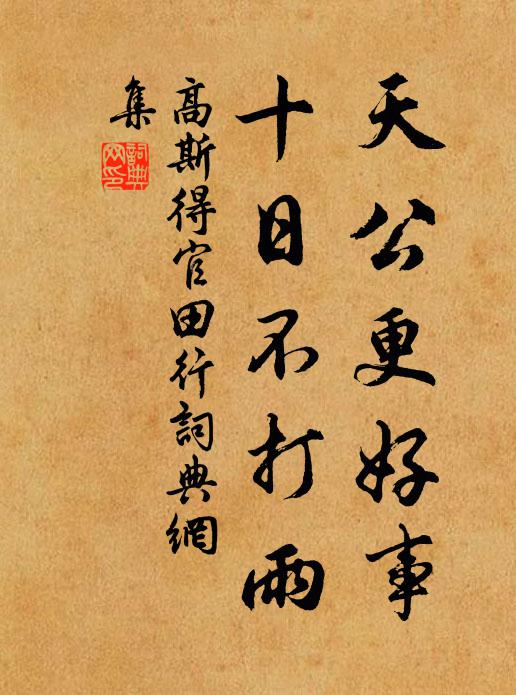 天公更好事
十日不打雨
高斯得官田行詞典網
集
詞典
网印